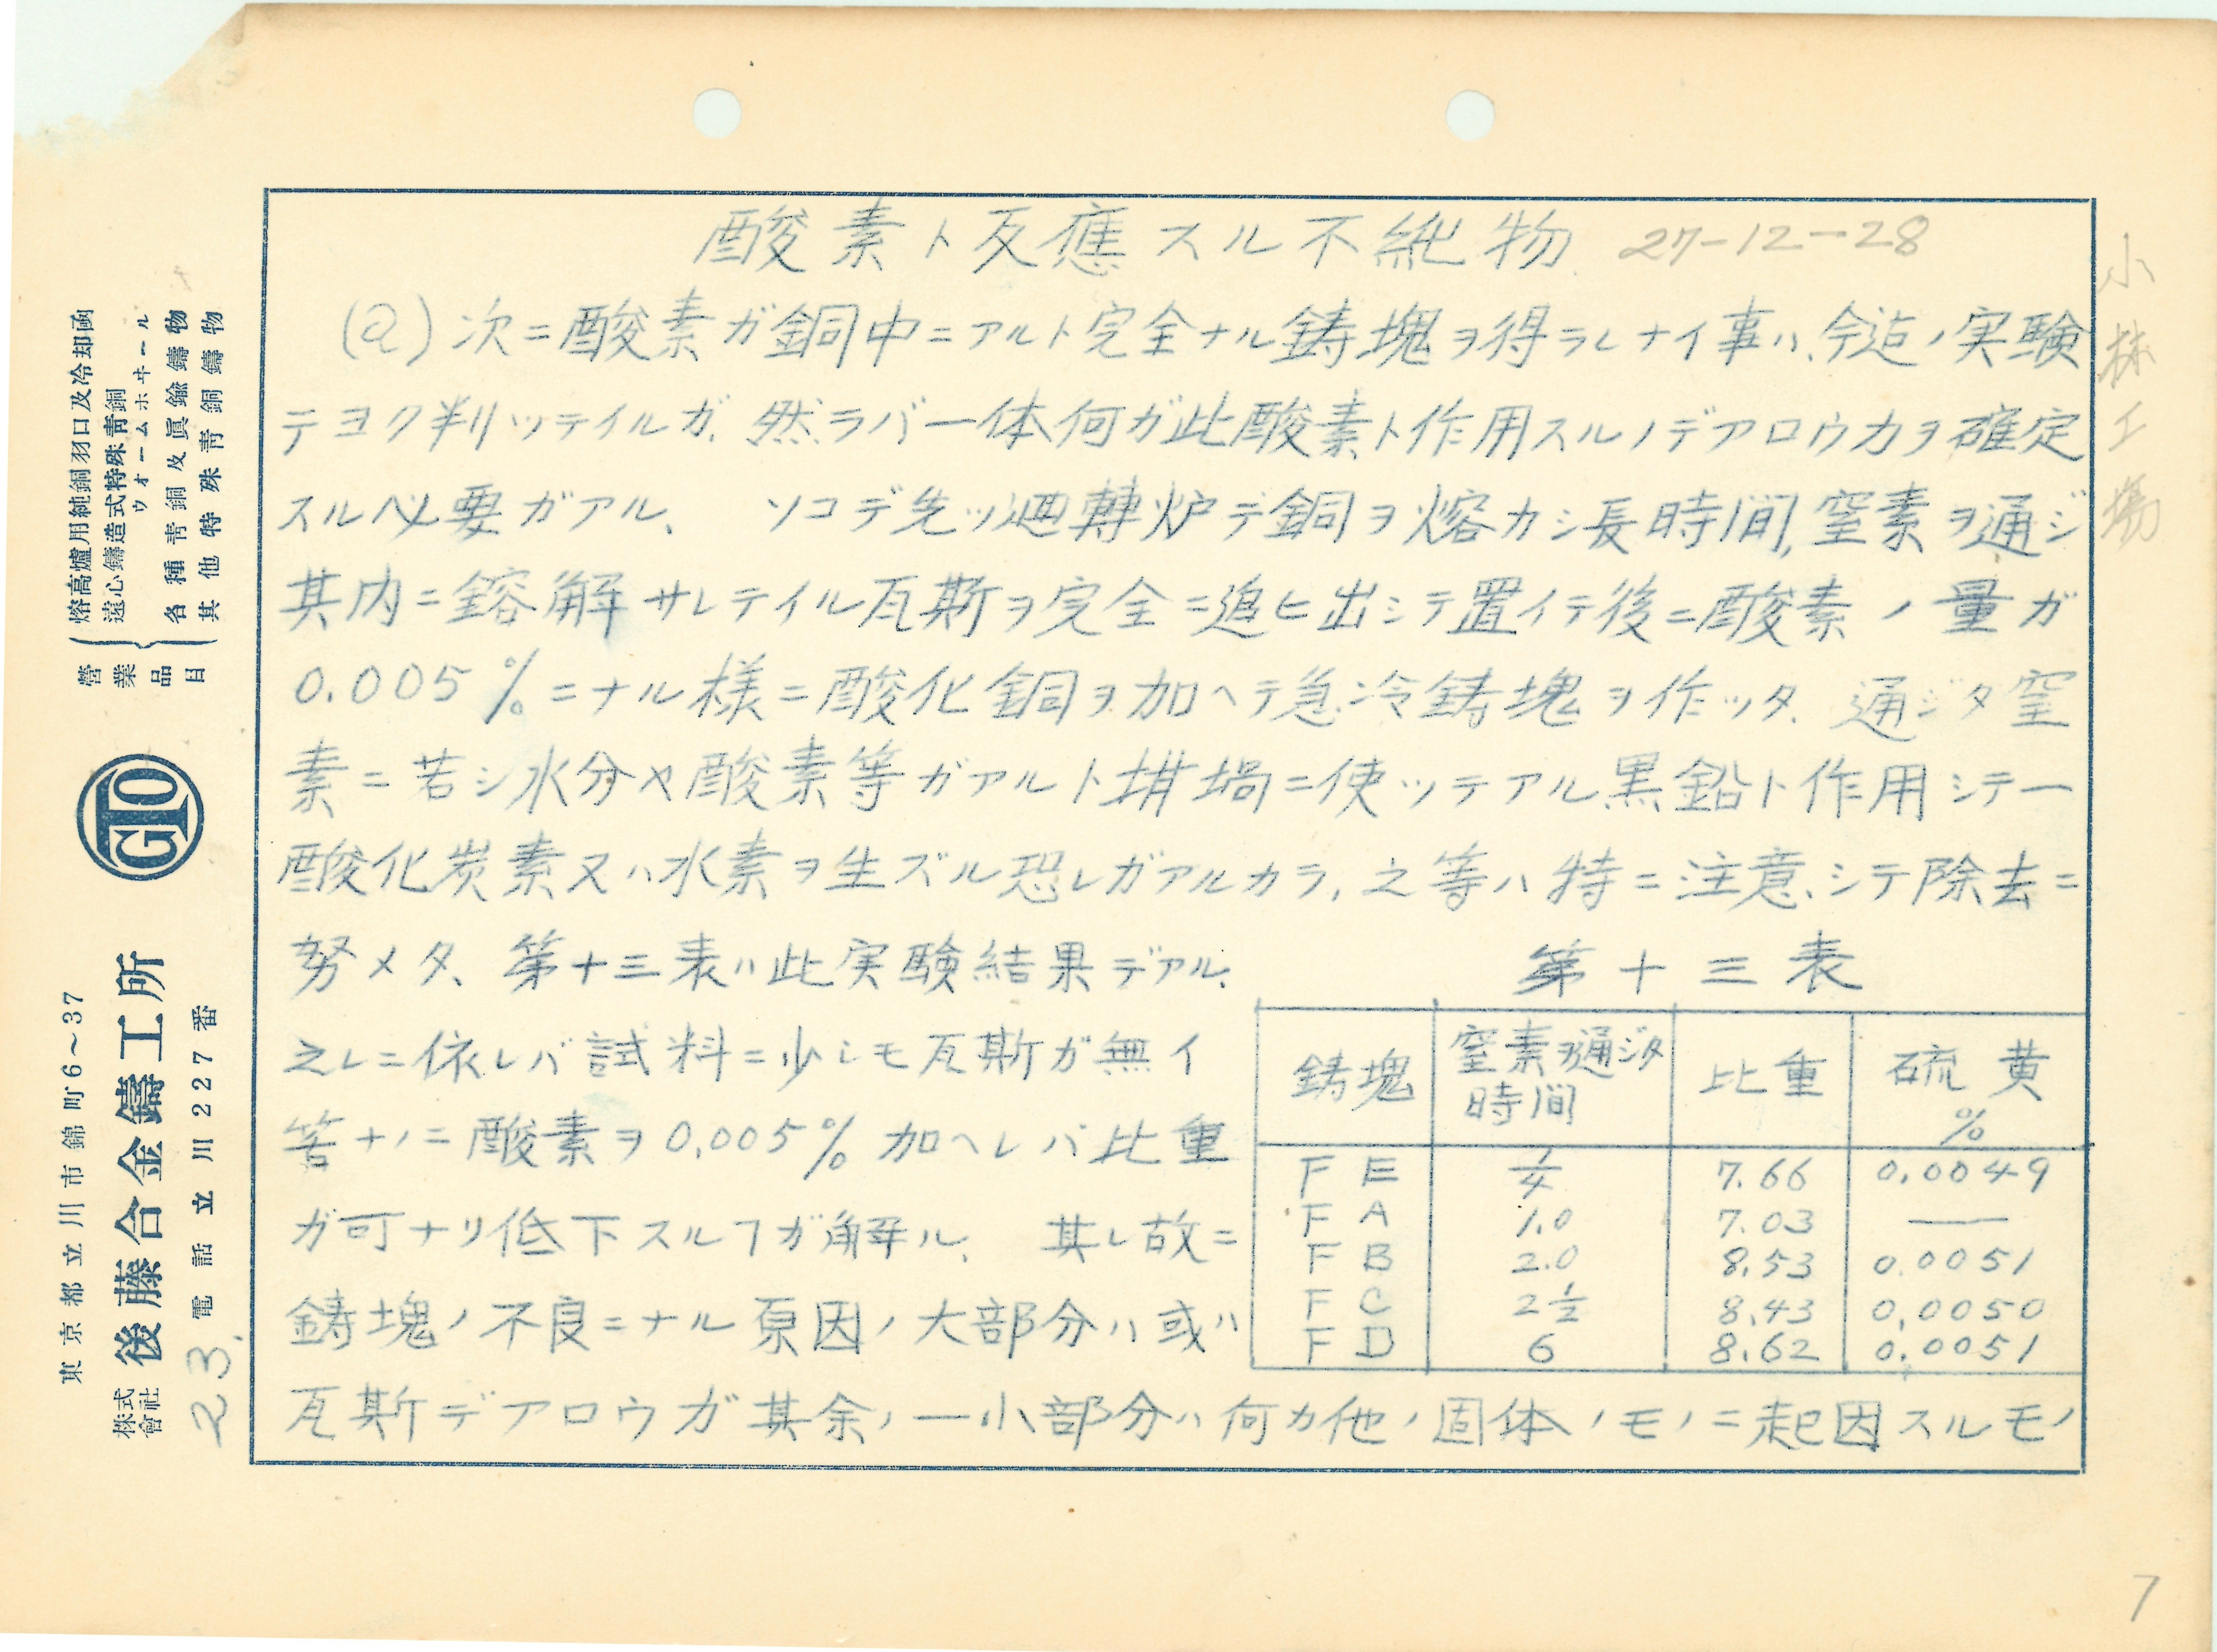 酸素ト反應スル不純物 27-12-28
(a) 次ニ酸素ガ銅中ニアルト完全ナル鋳塊ヲ得ラレナイ事ハ、今迠ノ実験
テヨク判ッテイルガ、然ラバ一体何ガ此酸素ト作用スルノデアロウカヲ確定
スル必要ガアル、 ソコデ先ッ廻轉炉デ銅ヲ熔カシ長時間,窒素ヲ通ジ
其内ニ鎔解サレテイル瓦斯ヲ完全ニ追ヒ出シテ置イテ後ニ酸素ノ量ガ
0.005%ニナル様ニ酸化銅ヲ加ヘテ急冷鋳塊ヲ作ッタ、通ジタ窒
素ニ若シ水分ヤ酸素等ガアルト坩堝ニ使ッテアル黒鉛ト作用シテ一
酸化炭素又ハ水素ヲ生ズル恐レガアルカラ,之等ハ特ニ注意シテ除去ニ
努メタ、第十三表ハ此実験結果デアル、
之レニ依レバ試料ニ少シモ瓦斯ガ無イ
筈ナノニ酸素ヲ0.005%加ヘレバ比重
ガ可ナリ低下スルヿガ解ル、 其レ故ニ
鋳塊ノ不良ニナル原因ノ大部分ハ或ハ
瓦斯デアロウガ其余ノ一小部分ハ何カ他ノ固体ノモノニ起因スルモノ
第十三表
鋳塊 窒素ヲ通ジタ時間 比重 硫黄%
FE 1/4 7.66 0.0049
FA 1.0 7.03 —
FB 2.0 8.53 0.0051
FC 2 1/2 8.43 0.0050
FD 6 8.62 0.0051
小林工場
7
23.
營業品目
熔高爐用純銅羽口及冷却函
遠心鑄造式特殊青銅ウォームホヰール
各種青銅及眞鍮鑄物
其他特殊青銅鑄物
GTO
東京都立川市錦町6~37
株式會社 後藤合金鑄工所
電話立川227番